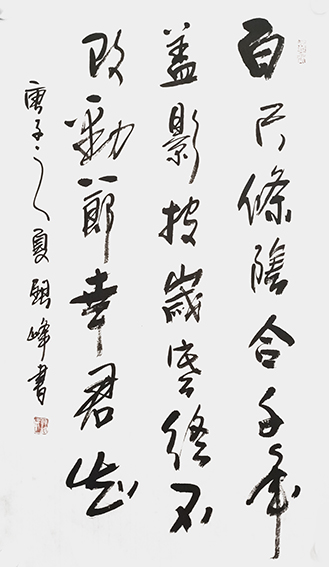 百尺條陰合千年
盖影披歲寒終不
改勁節幸君知
庚子之夏峰書